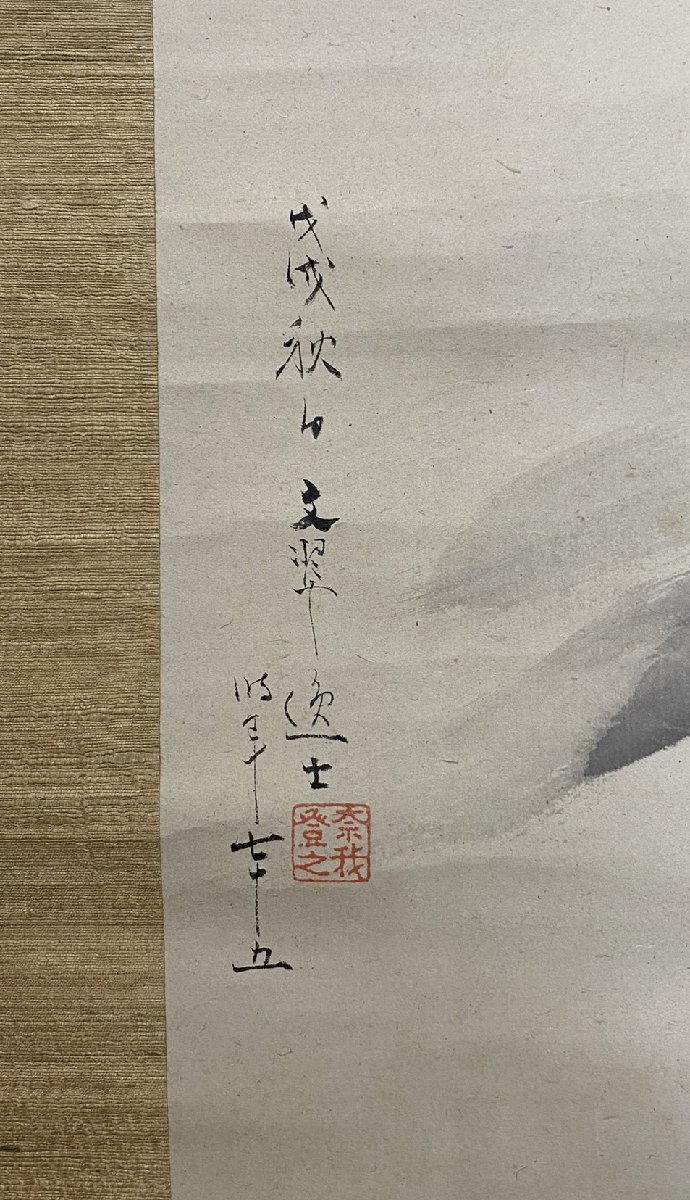 戊戌秋日 文翠逸士
時年七十五
奈我
登之